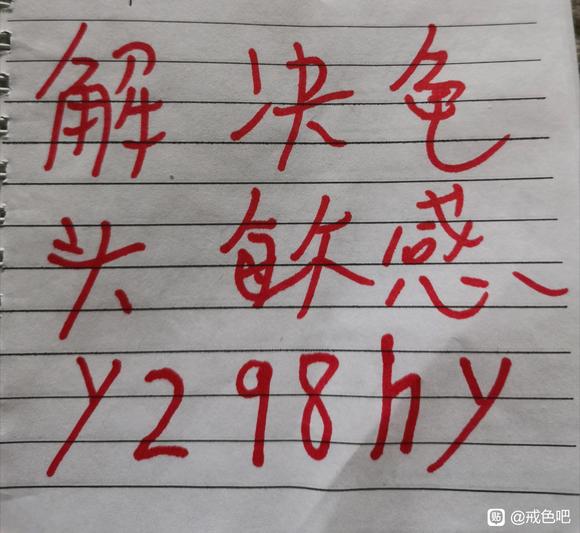 解决色
头敏感
y298hy
贴 @戒色吧